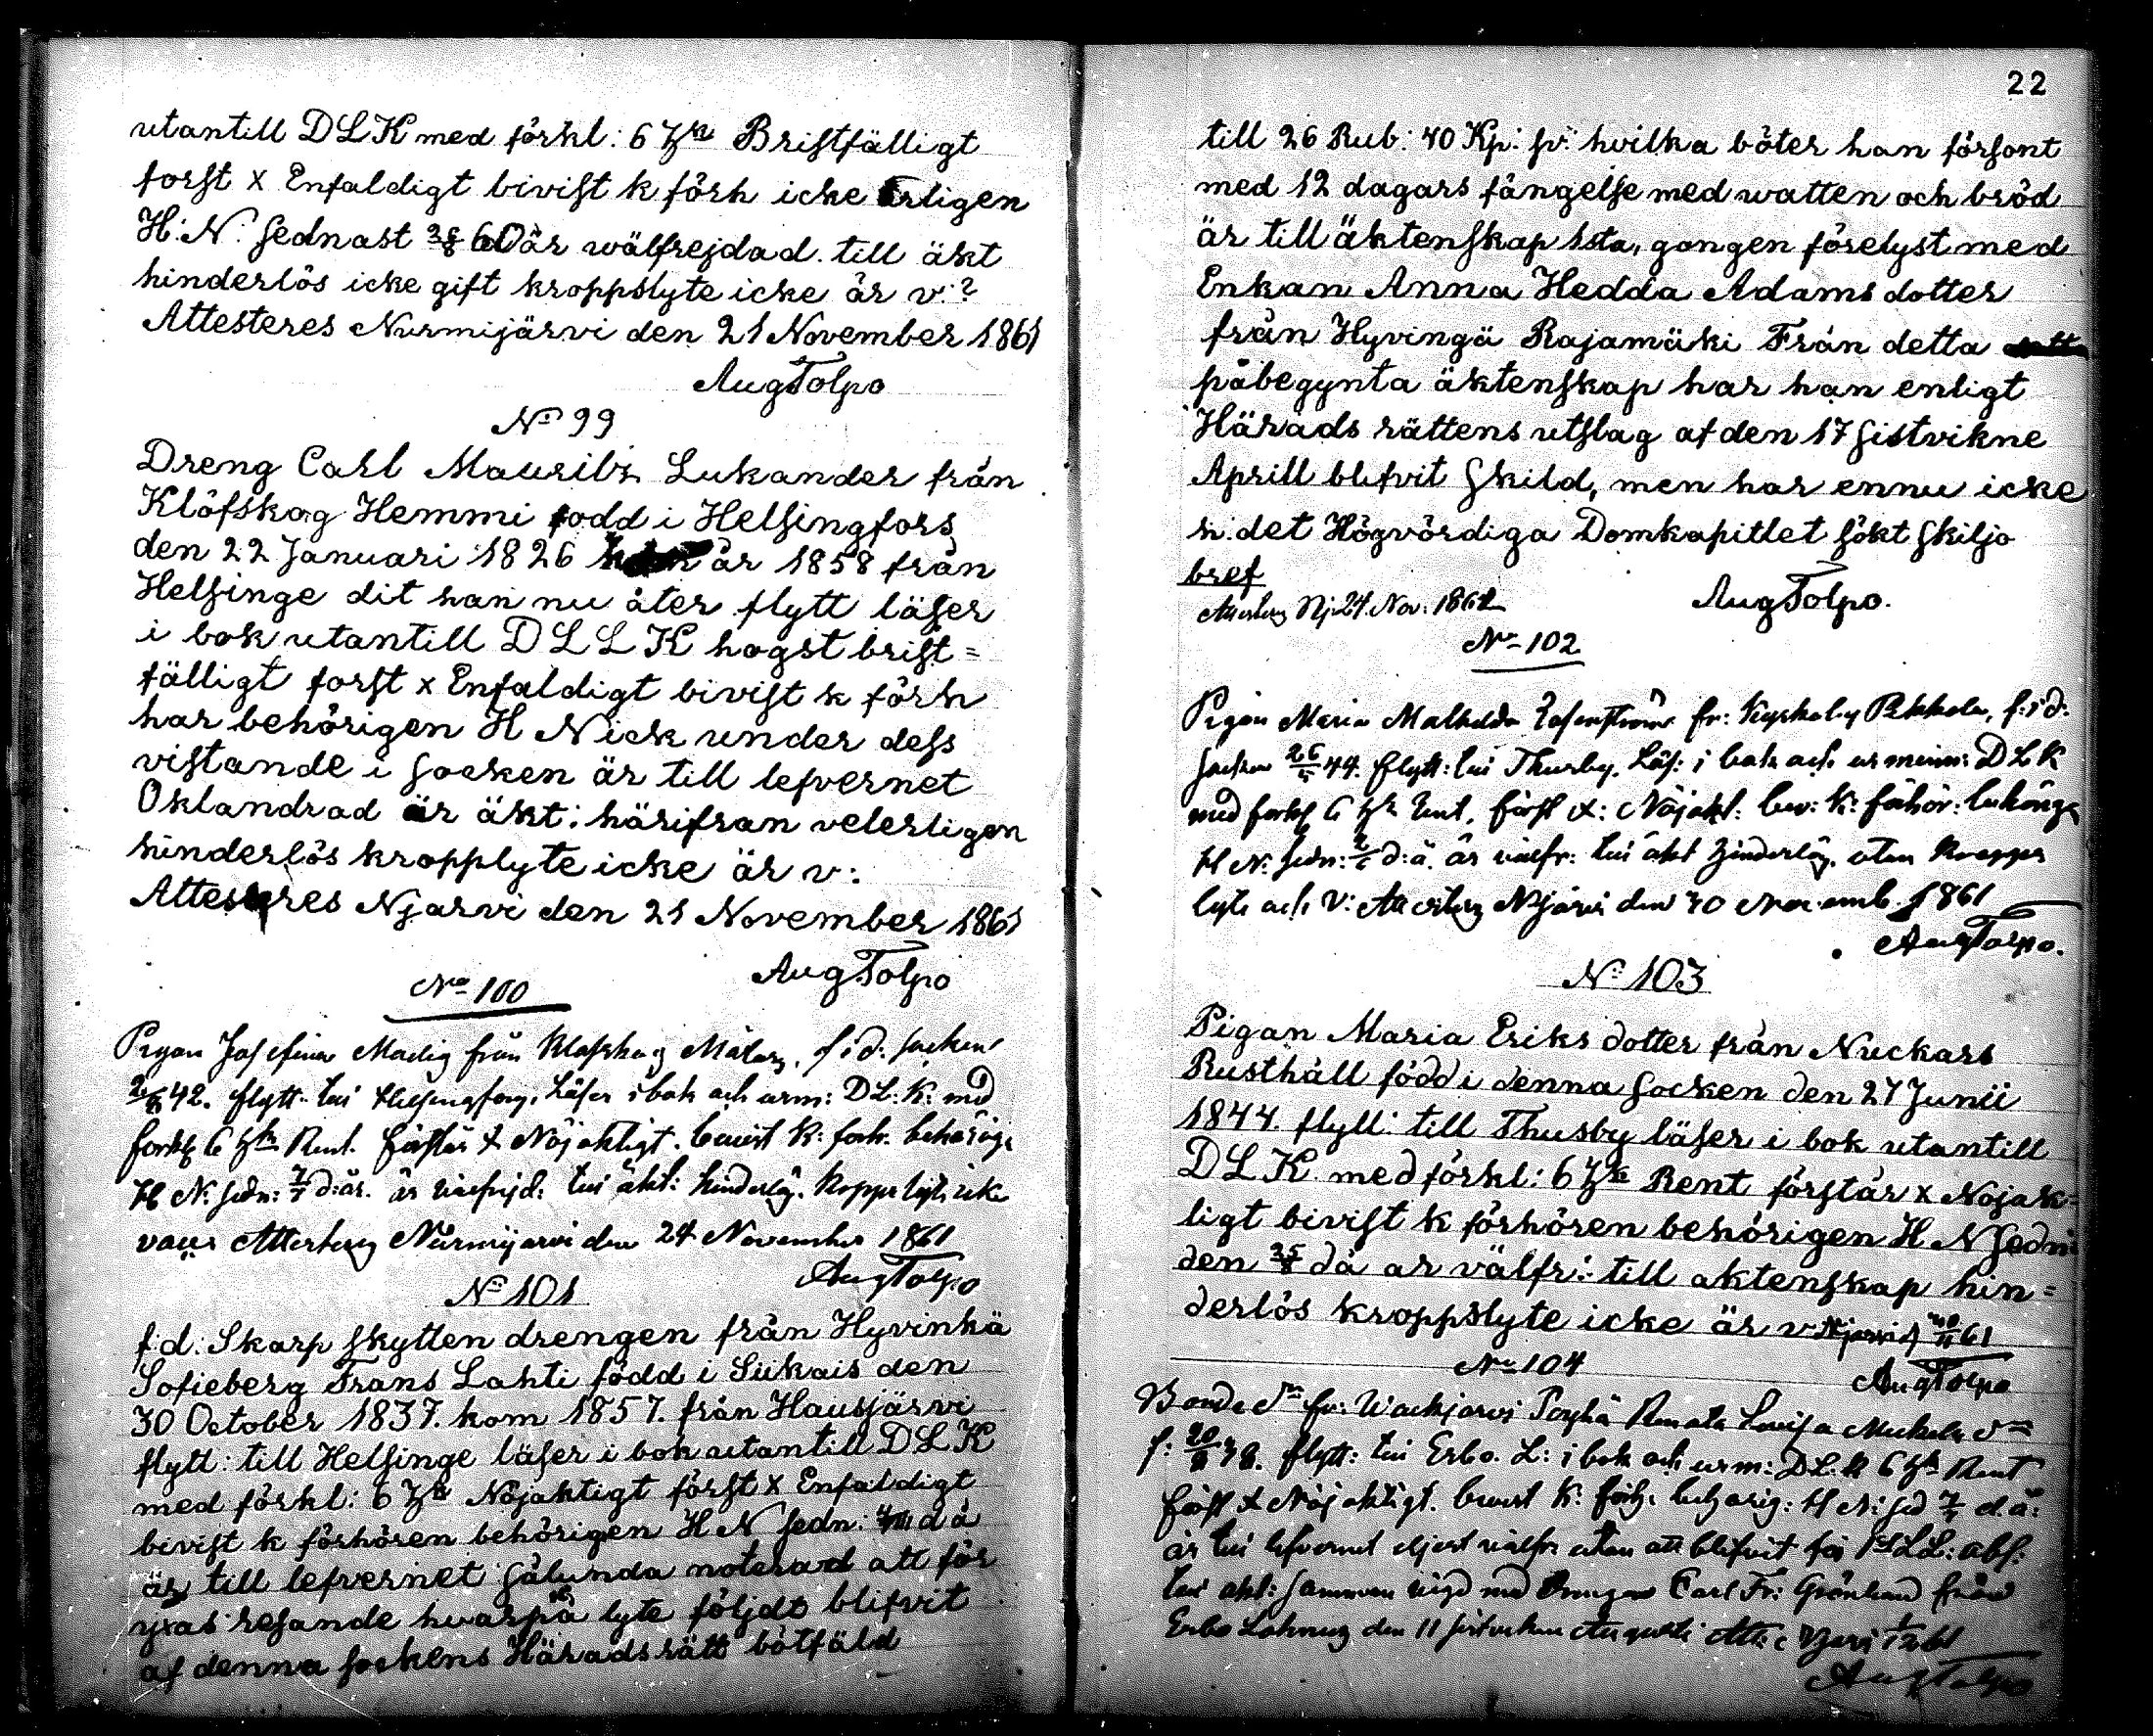 utantill DLK med förkl: 6 Bristfälligt
forst x Enfaldigt bivist k förh icke
H: N: sednast är wälfrejdad till äkt
hinderlös icke gift kroppslyte icke är v:?
Attesteres Nurmijärvi den 21 November 1861
AugTolpo
No 99
Dreng Carl Lukander från
Klöfskog Hemmi född i Helsingfors
den 22 Januari 1826 år 1858 från
Helsinge dit han nu åter flytt läser
i bok utantill D L L K hogst brist=
fälligt forst x Enfaldigt bivist k förh
har behörigen H N ick under dess
vistande i socken är till lefvernet
Oklandrad är äkt: härifran velerligen
hinderlös kropplyte icke är v:
Attesteres Njarvi den 21 November 1861
AugTolpo
No 100
Pigan Josefina från Klofskog
42. flytt till Helsingfors. Läser i bok och urm: DL: K: med
förkl 6 Rent. förstår x Nöjaktigt. bevist K: forh. behörige
H N: sedn: d: är. är välfrejd: till äkt: hinderlös. kropps lyte icke
Attesteres Nurmijarvi den 24 November 1861
AugTolpo
No 101
f:d: Skarp skytten drengen från Hyvinkä
Sofieberg Frans Lahti född i Siikais den
30 October 1837. kom 1857. från Hausjärvi
flytt: till Helsinge läser i bok utantill DLK
med förkl: 6 Nöjaktigt först x Enfaldigt
bivist k förhören behörigen H N sedn: d å
är till lefvernet sålunda noterad att för
resande hvarpå lyte följdt blifvit
af denna sockens Häradsrätt bötfäld
22
till 26 Rub: 40 Kp: sv: hvilka böter han försont
med 12 dagars fängelse med watten och bröd
är till äktenskap 1sta, gangen förelyst med
Enkan Anna Hedda Adams dotter
från Hyvingä Rajamäki Från detta
påbegynta äktenskap har han enligt
Härads rättens utslag af den 17 sistvikne
Aprill blifvit skild, men har ennu icke
h. det Högvördiga Domkapitlet sökt skiljo
bref
AugTolpo.
Nj: 24. Nov: 1861
No 102
Pigan Maria Mathilda fr: Pekkola, f. i d.
socken 44. flytt: till Thusby. Läs: i bok och ur minn: DLK
med forkl 6 Rent. först x: Nöjakt: bev: K: förhör: behörige
H N: sedn: d: å. är välfr: till äkt hinderlös. utan kropps
lyte och v: Njärvi den 30 Novemb. 1861
AugTolpo.
No 103
Pigan Maria Eriks dotter från Nuckars
Rusthåll född i denna socken den 27 Junii
1844. flytt: till Thusby läser i bok utantill
DLK. med förkl: 6 Rent förstår x Nojak=
ligt bivist k förhören behörigen H N sedn:
den då ar välfr: till aktenskap hin=
derlös kroppslyte icke är v 61
No 104
AugTolpo
Bonde fr: Wackjarvi Renata Lovisa
f: 38. flytt: till Esbo. L: i bok och urm: DL: K 6 Rent
först x Nöjaktigt. bevist K: förh: H N: sed d. å:
är till lefvernet eljest välfr utan att blifvit för L: abs:
till äkt: samman vigd med Carl Fr: Grönlund från
Esbo den 11 sistvikne Augusti
AugTolpo